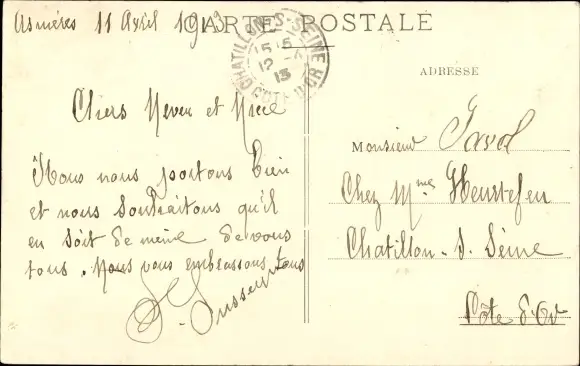 Asnières 11 Avril 1913
CARTE POSTALE
CHATILLON-S-SEINE
15 15
12 -4
13
COTE D'OR
ADRESSE
Chers Neveu et Nièce
Nous nous portons bien
et nous souhaitons qu'il
en soit de même de vous
tous. Nous vous embrassons tous
Monsieur
Chez Mme
Chatillon. s. Seine
Côte d'Or